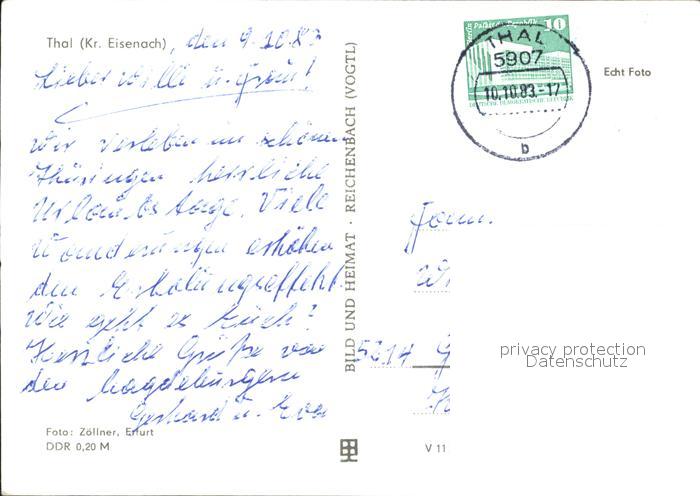 Thal (Kr. Eisenach), den 9.10.83
Lieber Willi u. Frau!
Wir verleben im schönen
Thüringen herrliche
Urlaubstage. Viele
Wanderungen erhöhen
den Erholungseffekt.
Wie geht es Euch?
Herzliche Grüße von
den Magdeburgern
Gerhard u. Eva
Foto: Zöllner, Erfurt
DDR 0,20 M
BILD UND HEIMAT · REICHENBACH (VOGTL)
V 11
Berlin, Palast der Republik 10
DEUTSCHE DEMOKRATISCHE REPUBLIK
THAL
5907
10.10.83.-17
b
Echt Foto
Fam.
5214 G
privacy protection
Datenschutz